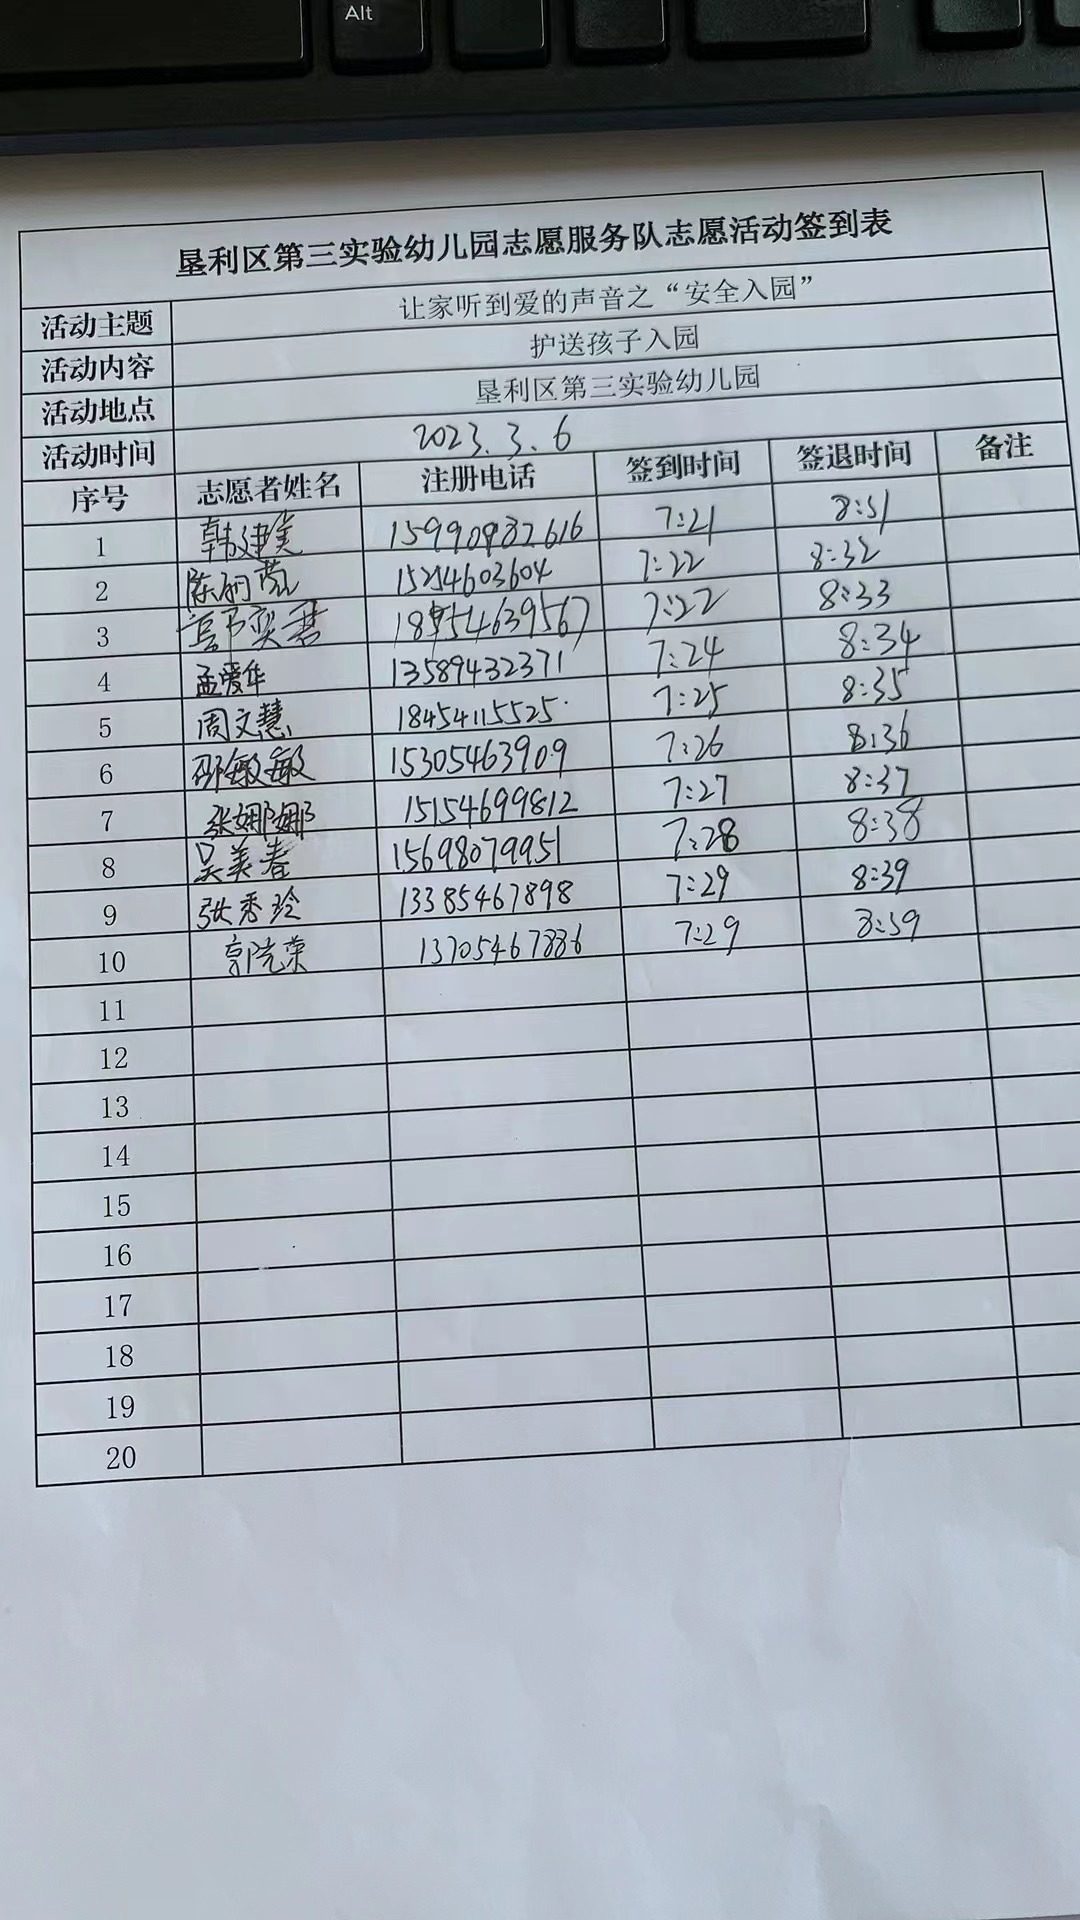 Alt
垦利区第三实验幼儿园志愿服务队志愿活动签到表
活动主题 让家听到爱的声音之“安全入园”
活动内容 护送孩子入园
活动地点 垦利区第三实验幼儿园
活动时间 2023.3.6
序号 志愿者姓名 注册电话 签到时间 签退时间 备注
1 韩建美 7:21
2 15254603604 7:22 8:32
3 7:22 8:33
4 孟爱华 13589432371 7:24 8:34
5 周文慧 18454115525 7:25 8:35
6 邵敏敏 15305463909 7:26 8:36
7 张娜娜 15154699812 7:27 8:37
8 吴美春 15698079951 7:28 8:38
9 张秀玲 13385467898 7:29 8:39
10 7:29
11
12
13
14
15
16
17
18
19
20